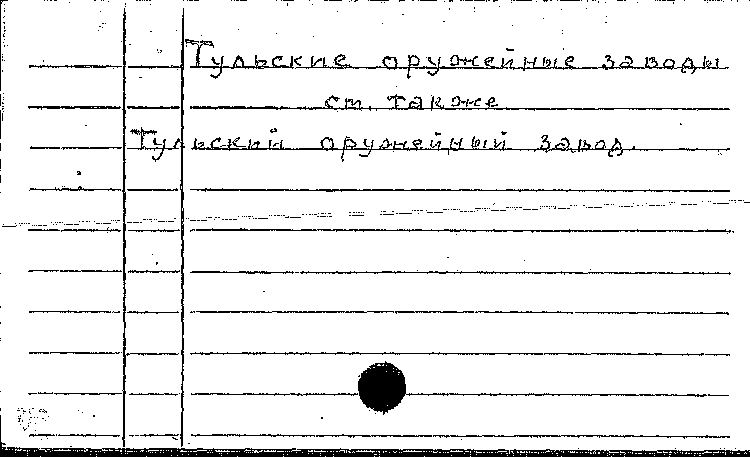 Тульские оружейные заводы
см. также
Тульский оружейный завод.